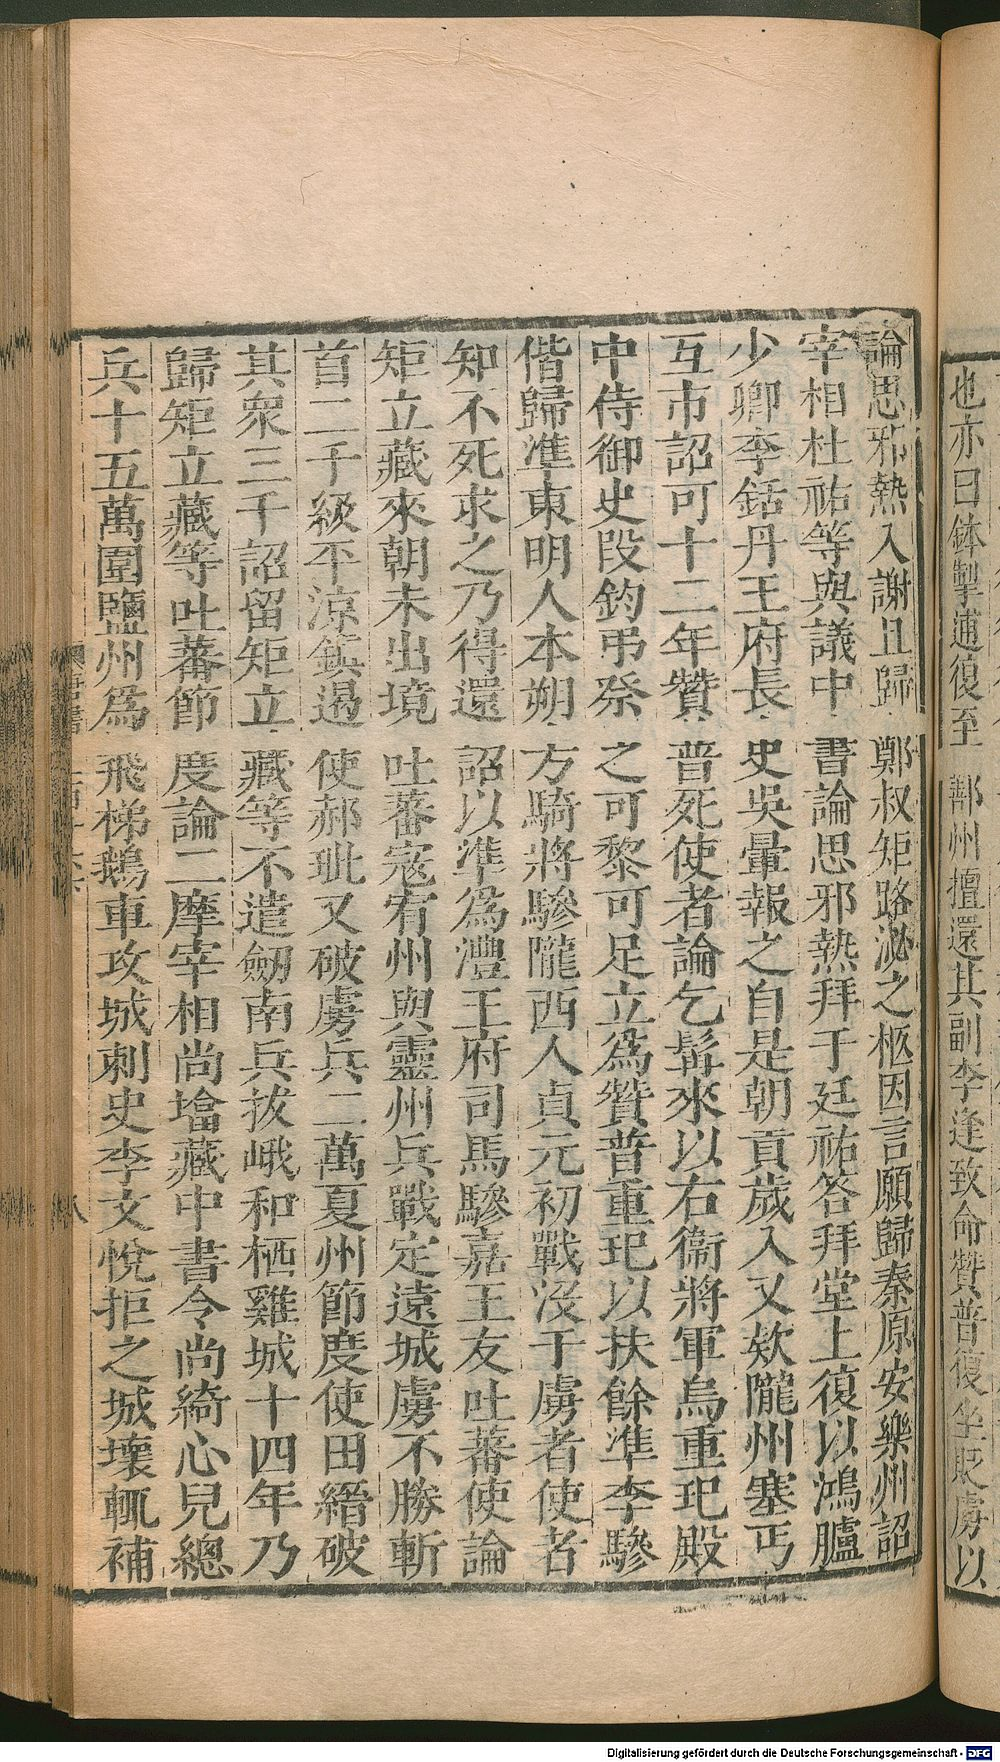 也亦曰鉢掣逋復至鄯州擅還其副李逢致命贊普復坐貶虜以
論思邪熱入謝且歸鄭叔矩路泌之柩因言願歸秦原安樂州詔
宰相杜祐等與議中書論思邪熱拜于廷祐答拜堂上復以鴻臚
少卿李銛丹王府長史吳暈報之自是朝貢歲入又款隴州塞丐
互市詔可十二年贊普死使者論乞髯來以右衞將軍烏重玘殿
中侍御史段鈞弔祭之可黎可足立爲贊普重玘以扶餘準李驂
偕歸準東明人本朔方騎將驂隴西人貞元初戰沒于虜者使者
知不死求之乃得還詔以準爲澧王府司馬驂嘉王友吐蕃使論
矩立藏來朝未出境吐蕃寇宥州與靈州兵戰定遠城虜不勝斬
首二千級平涼鎮遏使郝玼又破虜兵二萬夏州節度使田縉破
其衆三千詔留矩立藏等不遣劒南兵拔峨和栖雞城十四年乃
歸矩立藏等吐蕃節度論三摩宰相尚塔藏中書令尚綺心兒總
兵十五萬圍鹽州爲飛梯鵝車攻城刺史李文悅拒之城壞輒補
Digitalisierung gefördert durch die Deutsche Forschungsgemeinschaft - DFG